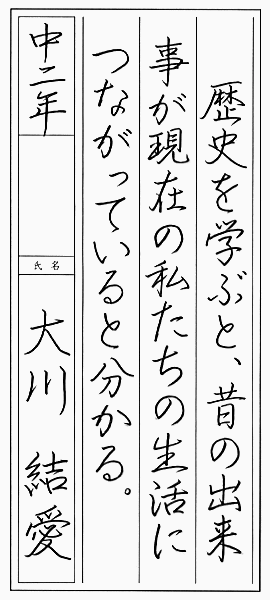 歴史を学ぶと、昔の出来
事が現在の私たちの生活に
つながっていると分かる。
中二年
氏名
大川 結愛